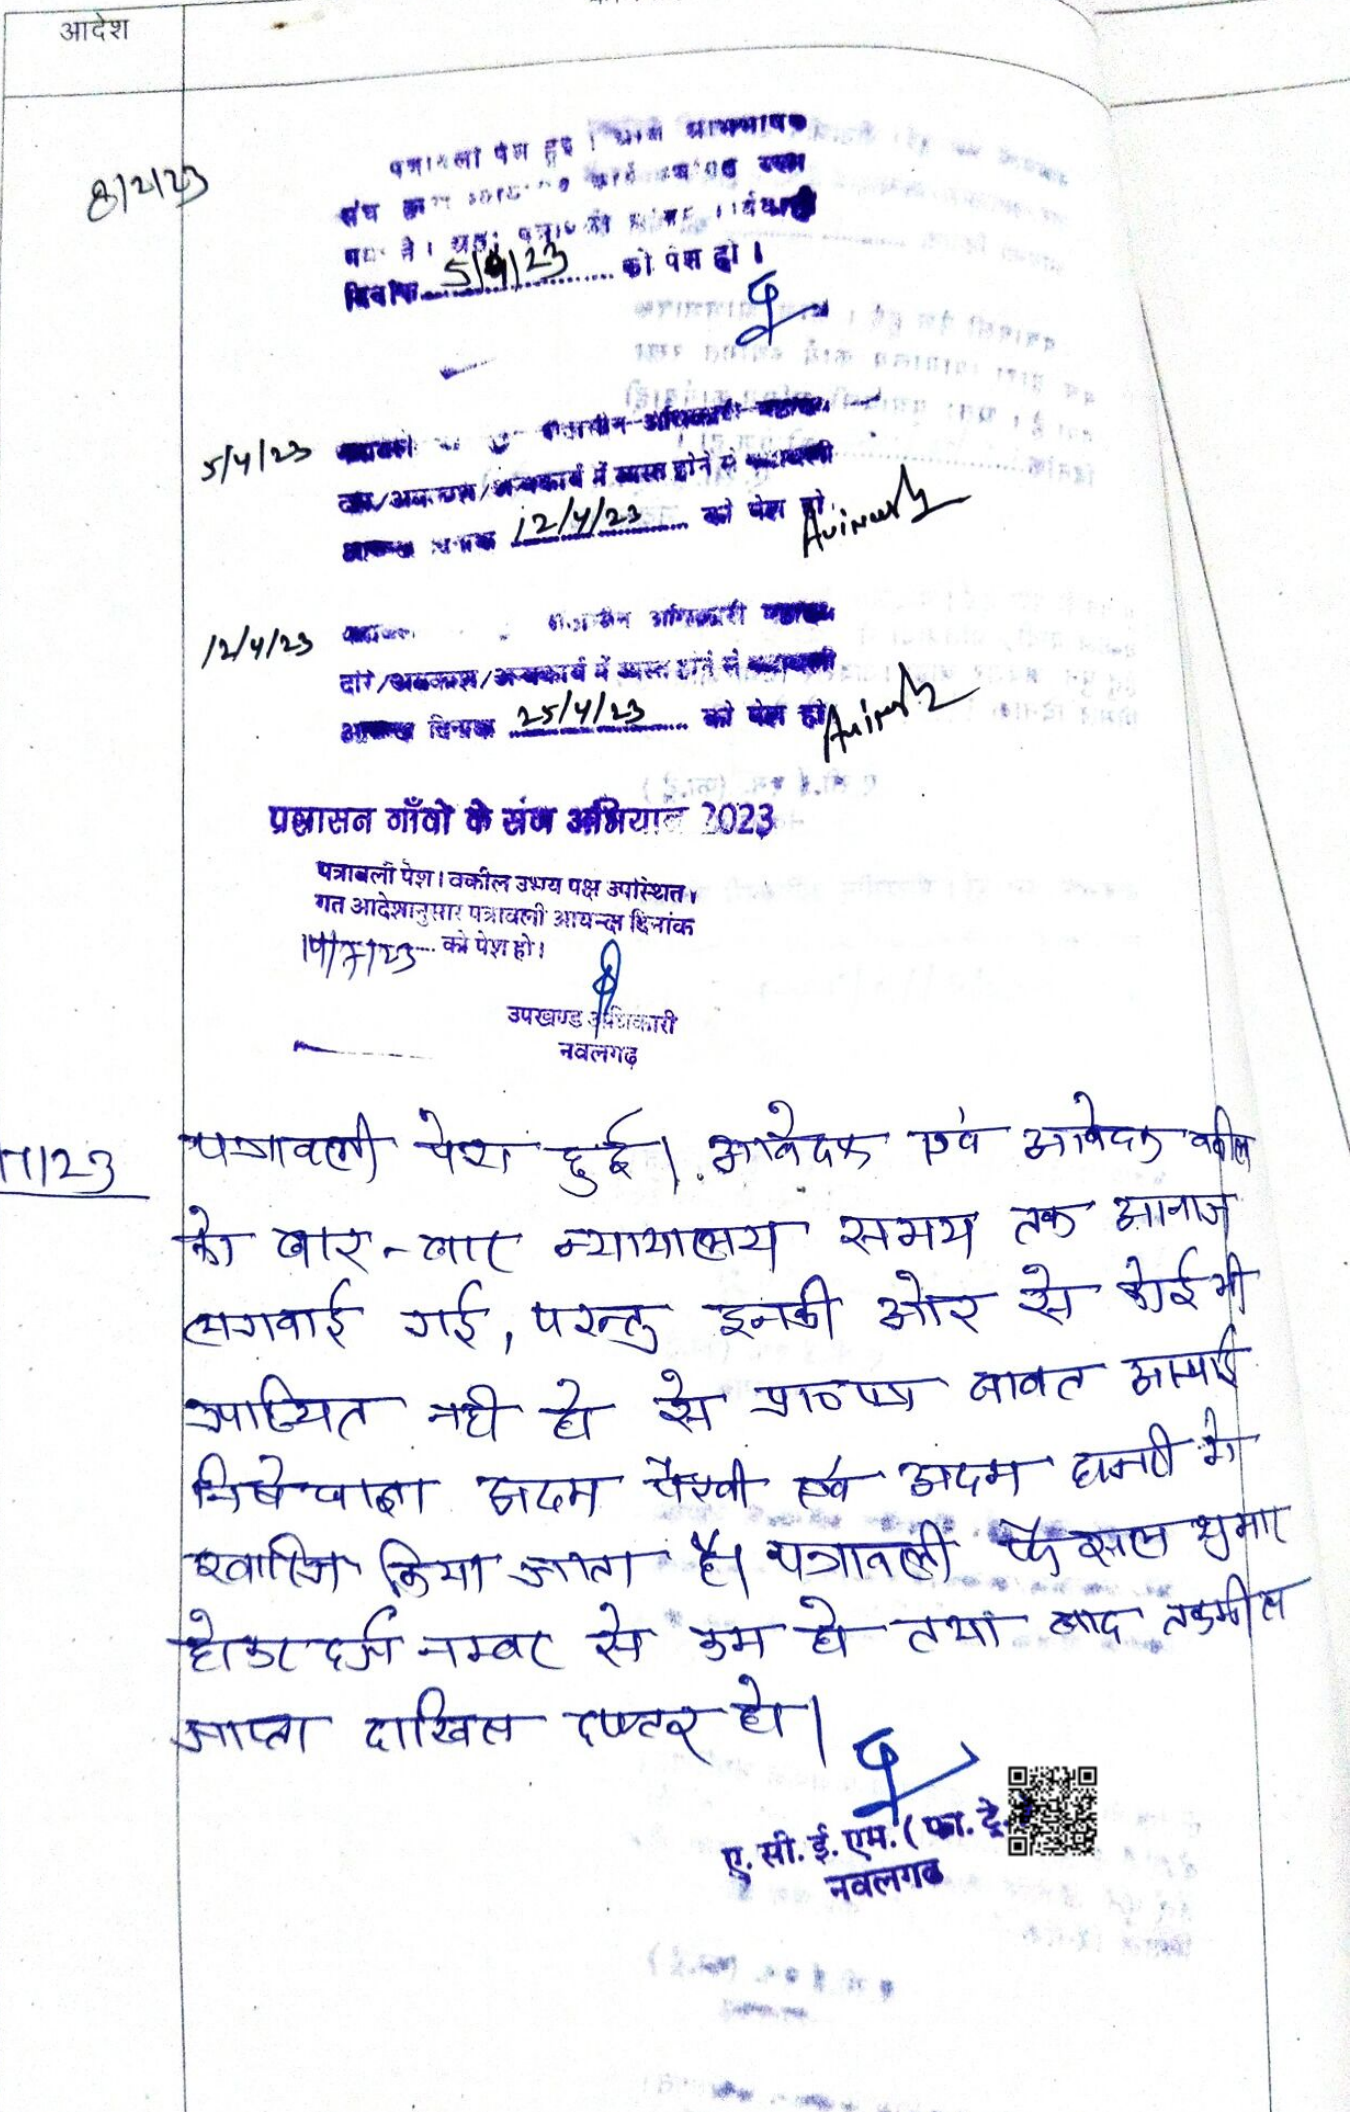 आदेश
8/2/23
पत्रावली पेश हुई ।
संघ
दिनांक 5/4/23 को पेश हो ।
5/4/23
अधिकारी
/अवकाश/अन्यकार्य में व्यस्त होने से पत्रावली
12/4/23 को पेश हो
12/4/23
अधिकारी
दौरे/अवकाश/अन्यकार्य में व्यस्त होने से पत्रावली
दिनांक 25/4/23 को पेश हो
प्रशासन गाँवों के संग अभियान 2023
पत्रावली पेश। वकील उभय पक्ष उपस्थित।
गत आदेशानुसार पत्रावली आयन्दा दिनांक
को पेश हो।
उपखण्ड अधिकारी
नवलगढ़
पत्रावली पेश हुई। आवेदक एवं आवेदक वकील
को बार-बार न्यायालय समय तक आवाज
लगवाई गई, परन्तु इनकी ओर से कोई भी
उपस्थित नही है से प्रा० पत्र बाबत अस्थाई
निषेधाज्ञा अदम पैरवी एवं अदम हाजरी मे
खारिज किया जाता है। पत्रावली फैसल शुमार
होकर दर्ज नम्बर से कम हो तथा बाद तकमील
जाप्ता दाखिल दफ्तर हो।
ए. सी. ई. एम. ( फा. ट्रे.
नवलगढ